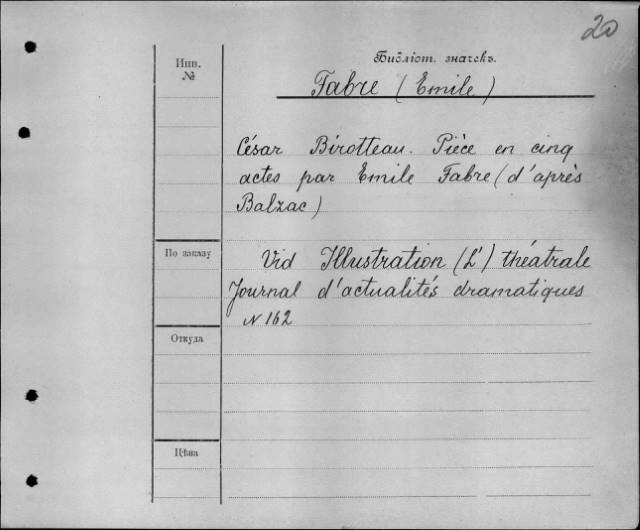 20
Инв.
№
Библіот. значекъ.
Fabre (Emile)
César Birotteau. Pièce en cinq
actes par Emile Fabre (d'après
Balzac)
По заказу
Vid Illustration (L') théatrale
Journal d'actualités dramatiques
N 162
Откуда
Цѣна